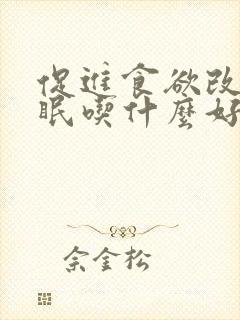 促進食欲改
眠喫什麼好
佘金松